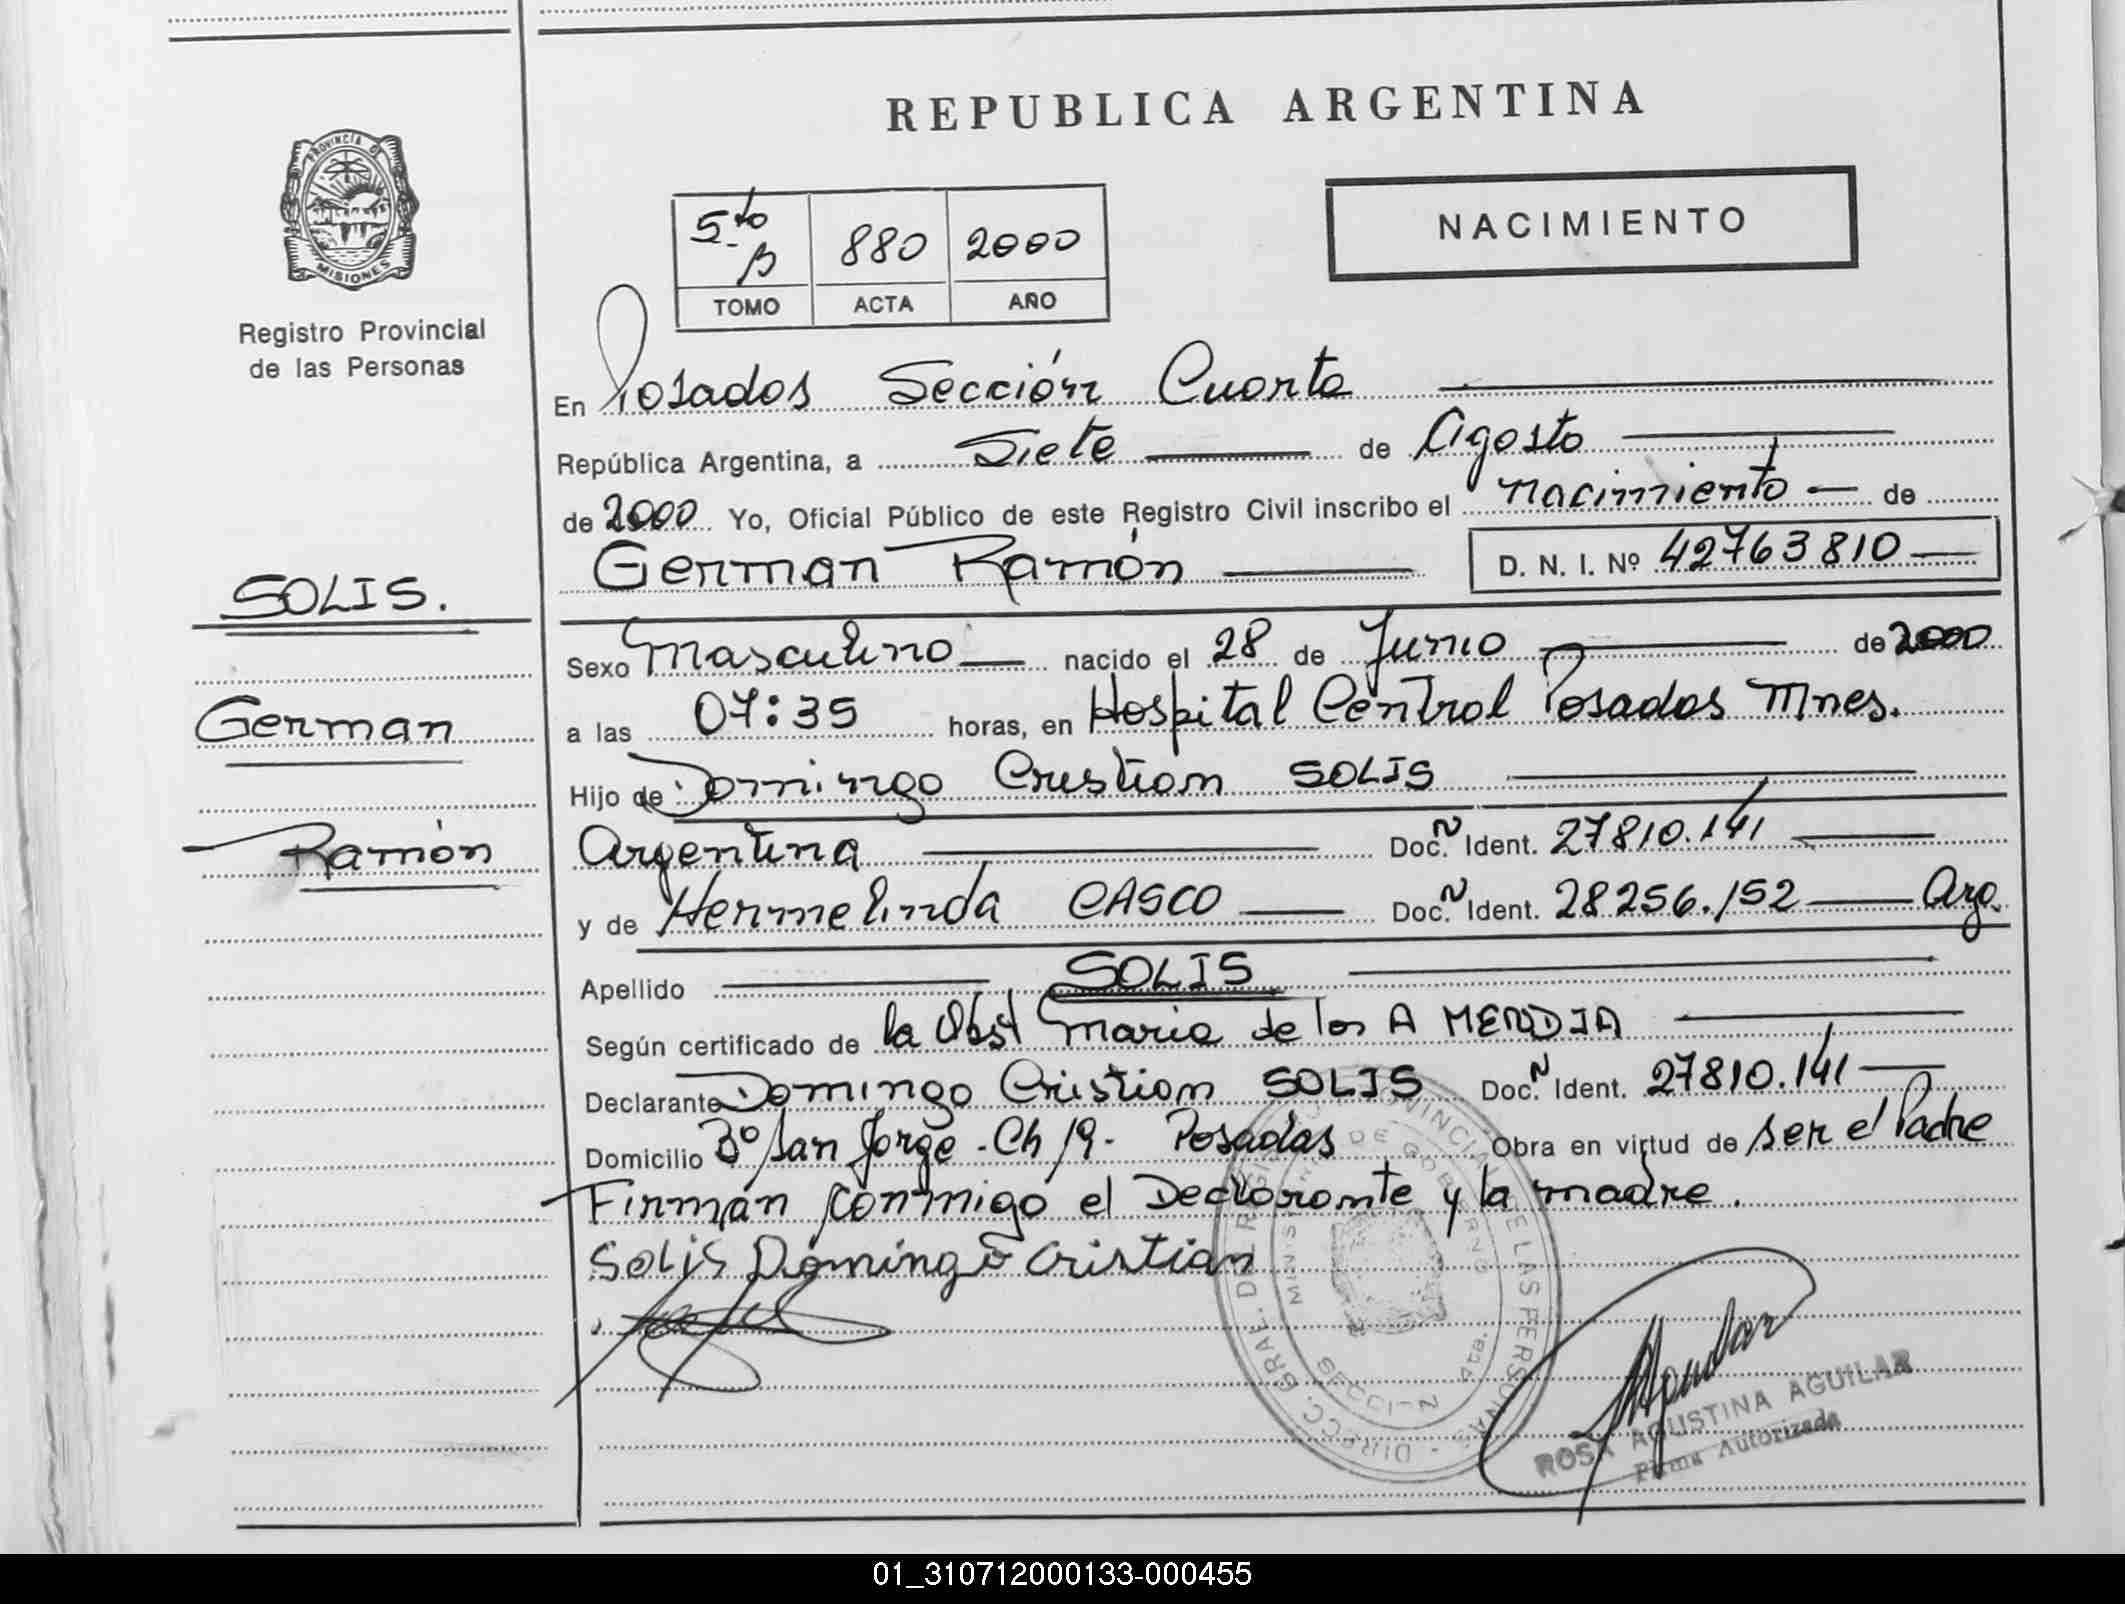 REPUBLICA ARGENTINA
PROVINCIA DE
MISIONES
Registro Provincial
de las Personas
NACIMIENTO
5-to B 880 2000
TOMO ACTA AÑO
En Posadas Sección Cuarta
República Argentina, a Siete de Agosto
de 2000 Yo, Oficial Público de este Registro Civil inscribo el nacimiento de
German Ramón D. N. I. Nº 42763810
SOLIS.
German
Ramón
Sexo Masculino nacido el 28 de Junio de 2000
a las 07:35 horas, en Hospital Central Posadas Mnes.
Hijo de Domingo Cristian SOLIS
Argentina Doc. N Ident. 27810.141
y de Hermelinda CASCO Doc. N Ident. 28256.152 Arg.
Apellido SOLIS
Según certificado de la Obst Maria de los A MENDIA
Declarante Domingo Cristian SOLIS Doc. N Ident. 27810.141
Domicilio Bº San Jorge - Ch 19 - Posadas Obra en virtud de ser el Padre
Firman conmigo el Declarante y la madre.
Solis Domingo Cristian
DIRECC. GRAL. DEL REGISTRO PROVINCIAL DE LAS PERSONAS
MINISTERIO DE GOBIERNO
SECCION 4ta.
ROSA AGUSTINA AGUILAR
Firma Autorizada
01_310712000133-000455